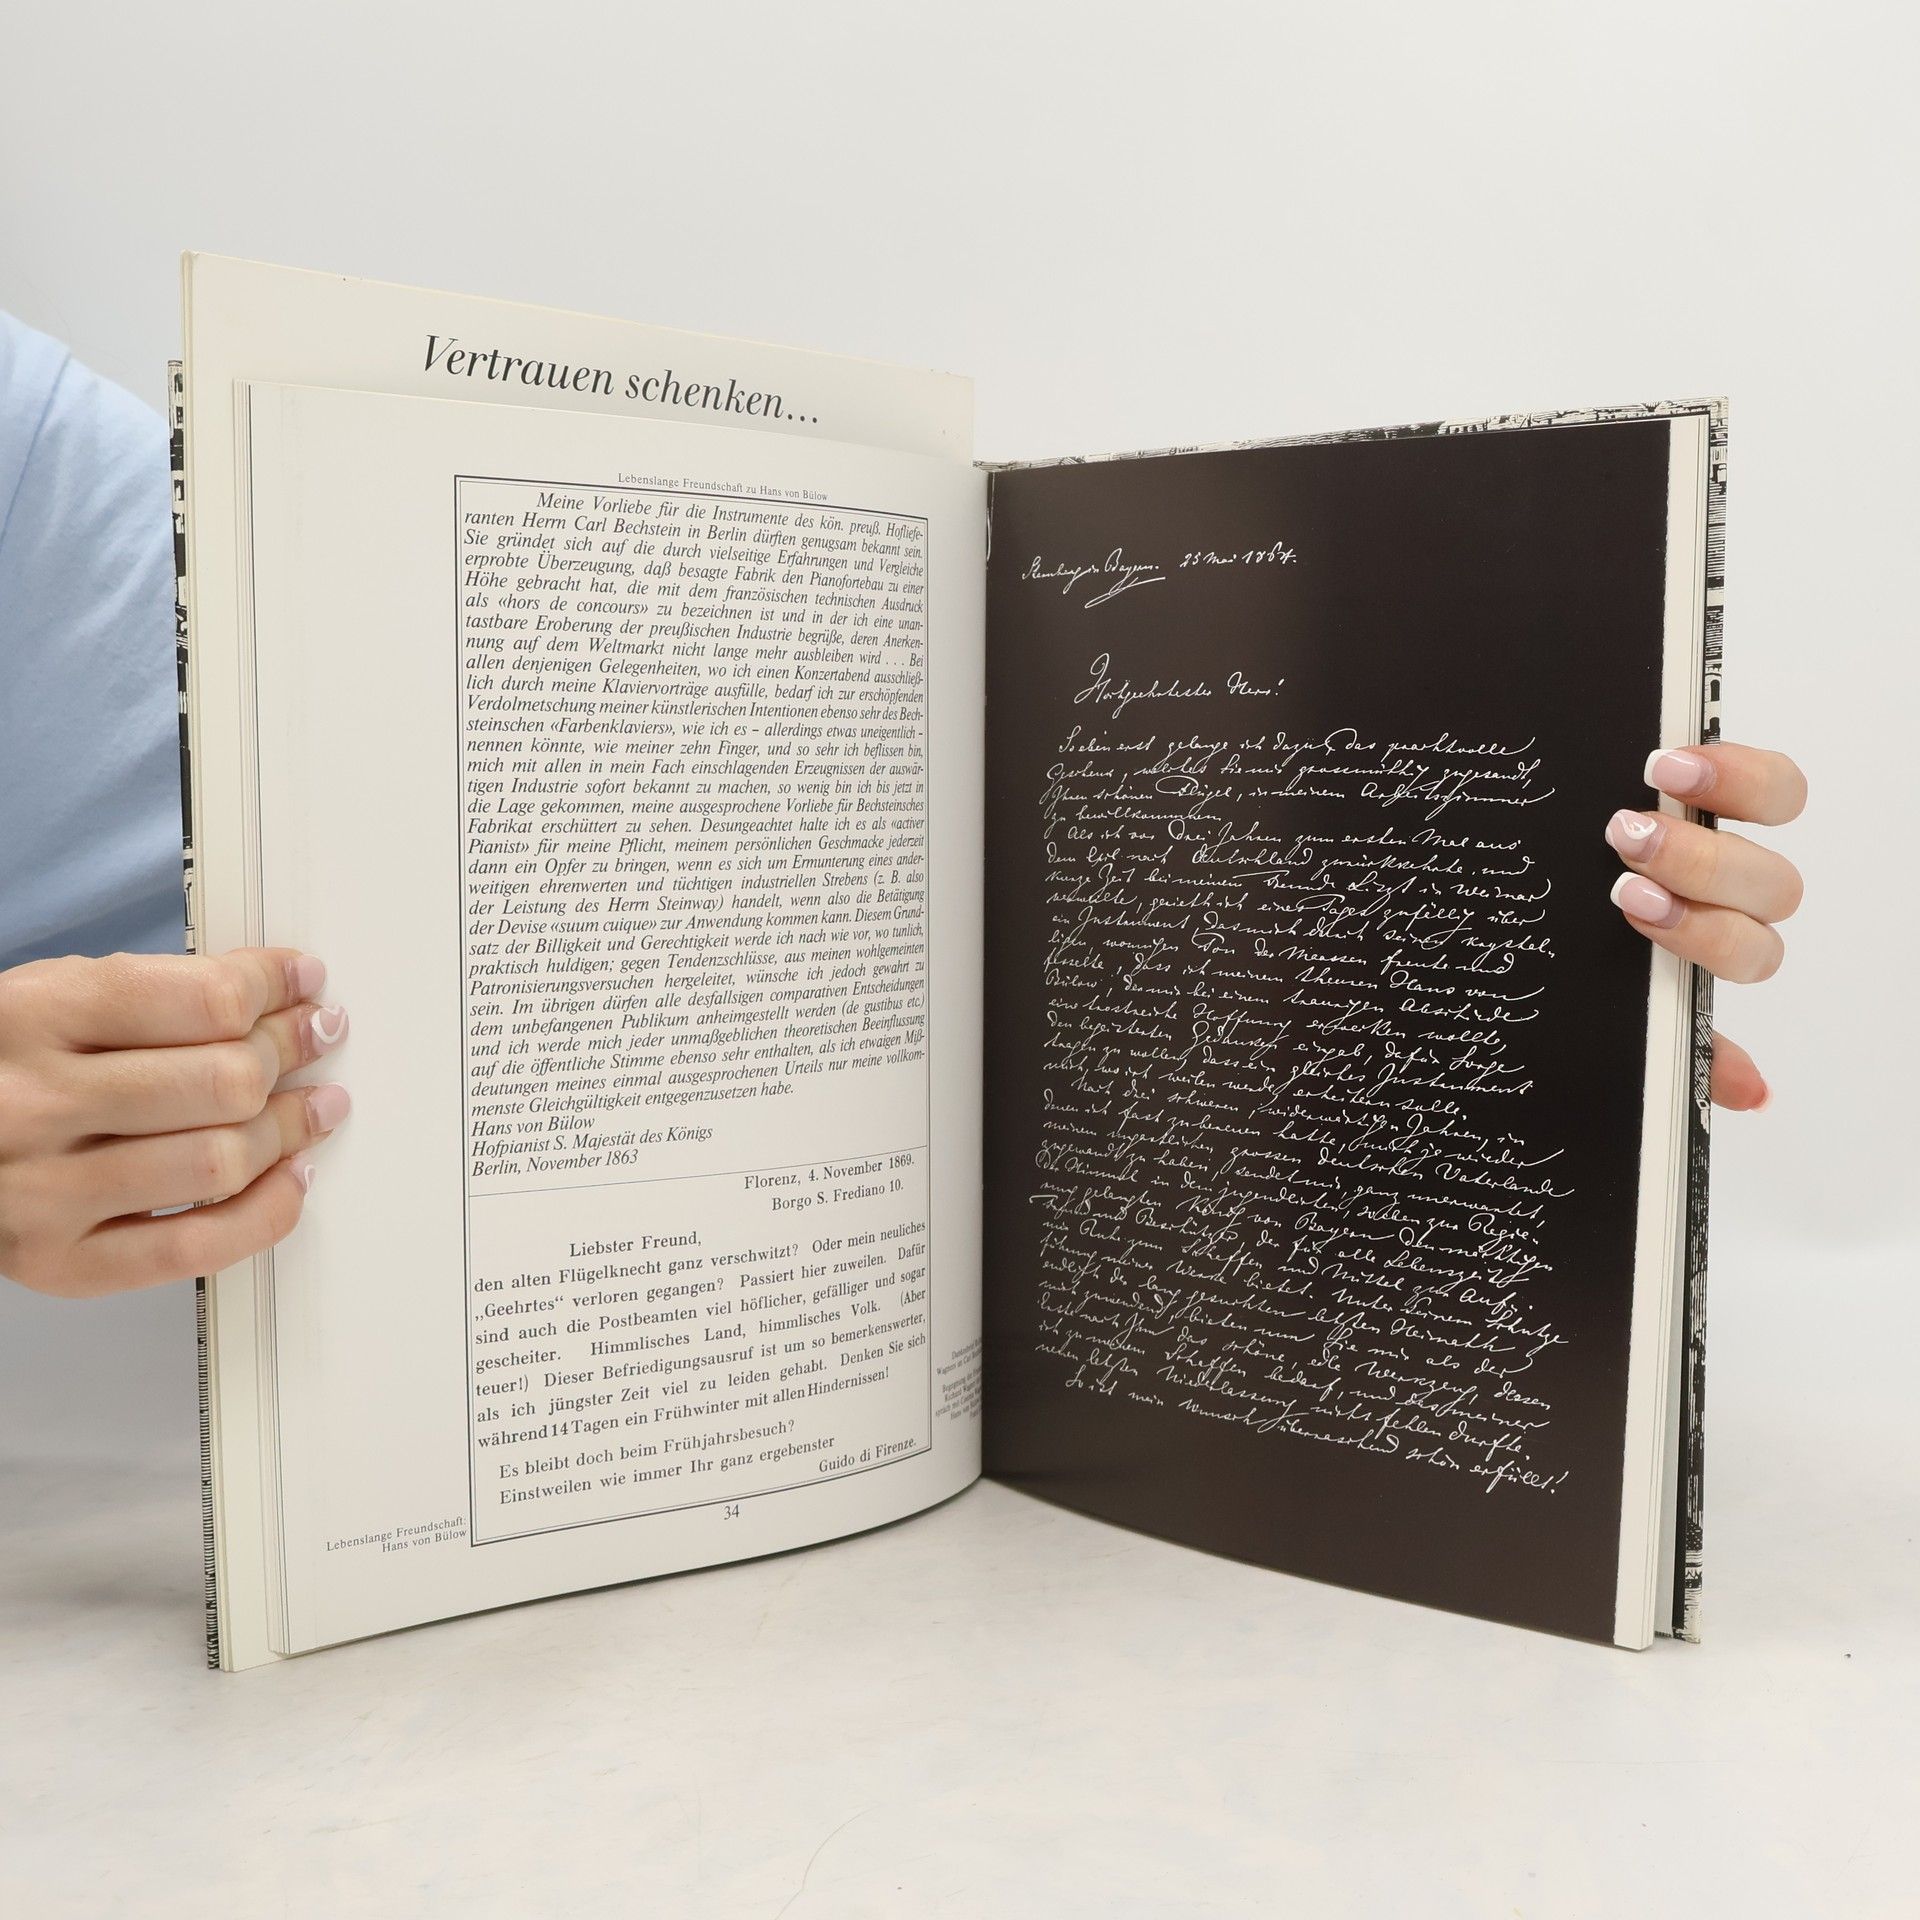 Vertrauen schenken...
Lebenslange Freundschaft zu Hans von Bülow
Meine Vorliebe für die Instrumente des kön. preuß. Hofliefe-
ranten Herrn Carl Bechstein in Berlin dürften genugsam bekannt sein.
Sie gründet sich auf die durch vielseitige Erfahrungen und Vergleiche
erprobte Überzeugung, daß besagte Fabrik den Pianofortebau zu einer
Höhe gebracht hat, die mit dem französischen technischen Ausdruck
als «hors de concours» zu bezeichnen ist und in der ich eine unan-
tastbare Eroberung der preußischen Industrie begrüße, deren Anerken-
nung auf dem Weltmarkt nicht lange mehr ausbleiben wird . . . Bei
allen denjenigen Gelegenheiten, wo ich einen Konzertabend ausschließ-
lich durch meine Klaviervorträge ausfülle, bedarf ich zur erschöpfenden
Verdolmetschung meiner künstlerischen Intentionen ebenso sehr des Bech-
steinschen «Farbenklaviers», wie ich es – allerdings etwas uneigentlich -
nennen könnte, wie meiner zehn Finger, und so sehr ich beflissen bin,
mich mit allen in mein Fach einschlagenden Erzeugnissen der auswär-
tigen Industrie sofort bekannt zu machen, so wenig bin ich bis jetzt in
die Lage gekommen, meine ausgesprochene Vorliebe für Bechsteinsches
Fabrikat erschüttert zu sehen. Desungeachtet halte ich es als «activer
Pianist» für meine Pflicht, meinem persönlichen Geschmacke jederzeit
dann ein Opfer zu bringen, wenn es sich um Ermunterung eines ander-
weitigen ehrenwerten und tüchtigen industriellen Strebens (z. B. also
der Leistung des Herrn Steinway) handelt, wenn also die Betätigung
der Devise «suum cuique» zur Anwendung kommen kann. Diesem Grund-
satz der Billigkeit und Gerechtigkeit werde ich nach wie vor, wo tunlich,
praktisch huldigen; gegen Tendenzschlüsse, aus meinen wohlgemeinten
Patronisierungsversuchen hergeleitet, wünsche ich jedoch gewahrt zu
sein. Im übrigen dürfen alle desfallsigen comparativen Entscheidungen
dem unbefangenen Publikum anheimgestellt werden (de gustibus etc.)
und ich werde mich jeder unmaßgeblichen theoretischen Beeinflussung
auf die öffentliche Stimme ebenso sehr enthalten, als ich etwaigen Miß-
deutungen meines einmal ausgesprochenen Urteils nur meine vollkom-
menste Gleichgültigkeit entgegenzusetzen habe.
Hans von Bülow
Hofpianist S. Majestät des Königs
Berlin, November 1863
Florenz, 4. November 1869.
Borgo S. Frediano 10.
Liebster Freund,
den alten Flügelknecht ganz verschwitzt? Oder mein neuliches
„Geehrtes“ verloren gegangen? Passiert hier zuweilen. Dafür
sind auch die Postbeamten viel höflicher, gefälliger und sogar
gescheiter. Himmlisches Land, himmlisches Volk. (Aber
teuer!) Dieser Befriedigungsausruf ist um so bemerkenswerter,
als ich jüngster Zeit viel zu leiden gehabt. Denken Sie sich
während 14 Tagen ein Frühwinter mit allen Hindernissen!
Es bleibt doch beim Frühjahrsbesuch?
Einstweilen wie immer Ihr ganz ergebenster
Guido di Firenze.
34
Lebenslange Freundschaft:
Hans von Bülow
Starnberg in Bayern. 25 Mai 1864.
Hochgeehrtester Herr!
Soeben erst gelange ich dazu, das prachtvolle
Geschenk, welches Sie mir grossmüthig zugesandt,
Ihren schönen Flügel, in meinem Arbeitszimmer
zu bewillkommnen.
Als ich vor drei Jahren zum ersten Mal aus
dem Exil nach Deutschland zurückkehrte, und
kurze Zeit bei meinem Freunde Liszt in Weimar
verweilte, gerieth ich eines Tages zufällig über
ein Instrument, das mich durch seinen krystal-
ligen, wonnigen Ton der Maassen freute und
fesselte, dass ich meinem theuren Hans von
Bülow, der mir bei einem traurigen Abschiede
eine trostreiche Hoffnung erwecken wollte,
den begeisterten Gedanken eingab, dafür Sorge
tragen zu wollen, dass ein gleiches Instrument
mich, wo ich weilen werde, erheitern solle.
Nach drei schweren, widerwärtigen Jahren, in
denen ich fast zu bereuen hatte, mich je wieder
meinem ungastlichen grossen deutschen Vaterlande
zugewandt zu haben, sendet mir, ganz unerwartet,
der Himmel in dem jugendlichen, soeben zur Regie-
rung gelangten König von Bayern den mächtigen
Freund und Beschützer, der für alle Lebenszeit
mir Ruhe zum Schaffen und Mittel zur Auf-
führung meiner Werke bietet. Unter seinem Schutze
endlich der lang gesuchten letzten Heimath
mich zuwendend, bieten nun Sie mir als der
erste nach Ihm das schöne, edle Werkzeug, dessen
ich zu meinem Schaffen bedarf, und das meiner
neuen letzten Niederlassung nicht fehlen durfte.
So ist mein Wunsch überraschend schön erfüllt!